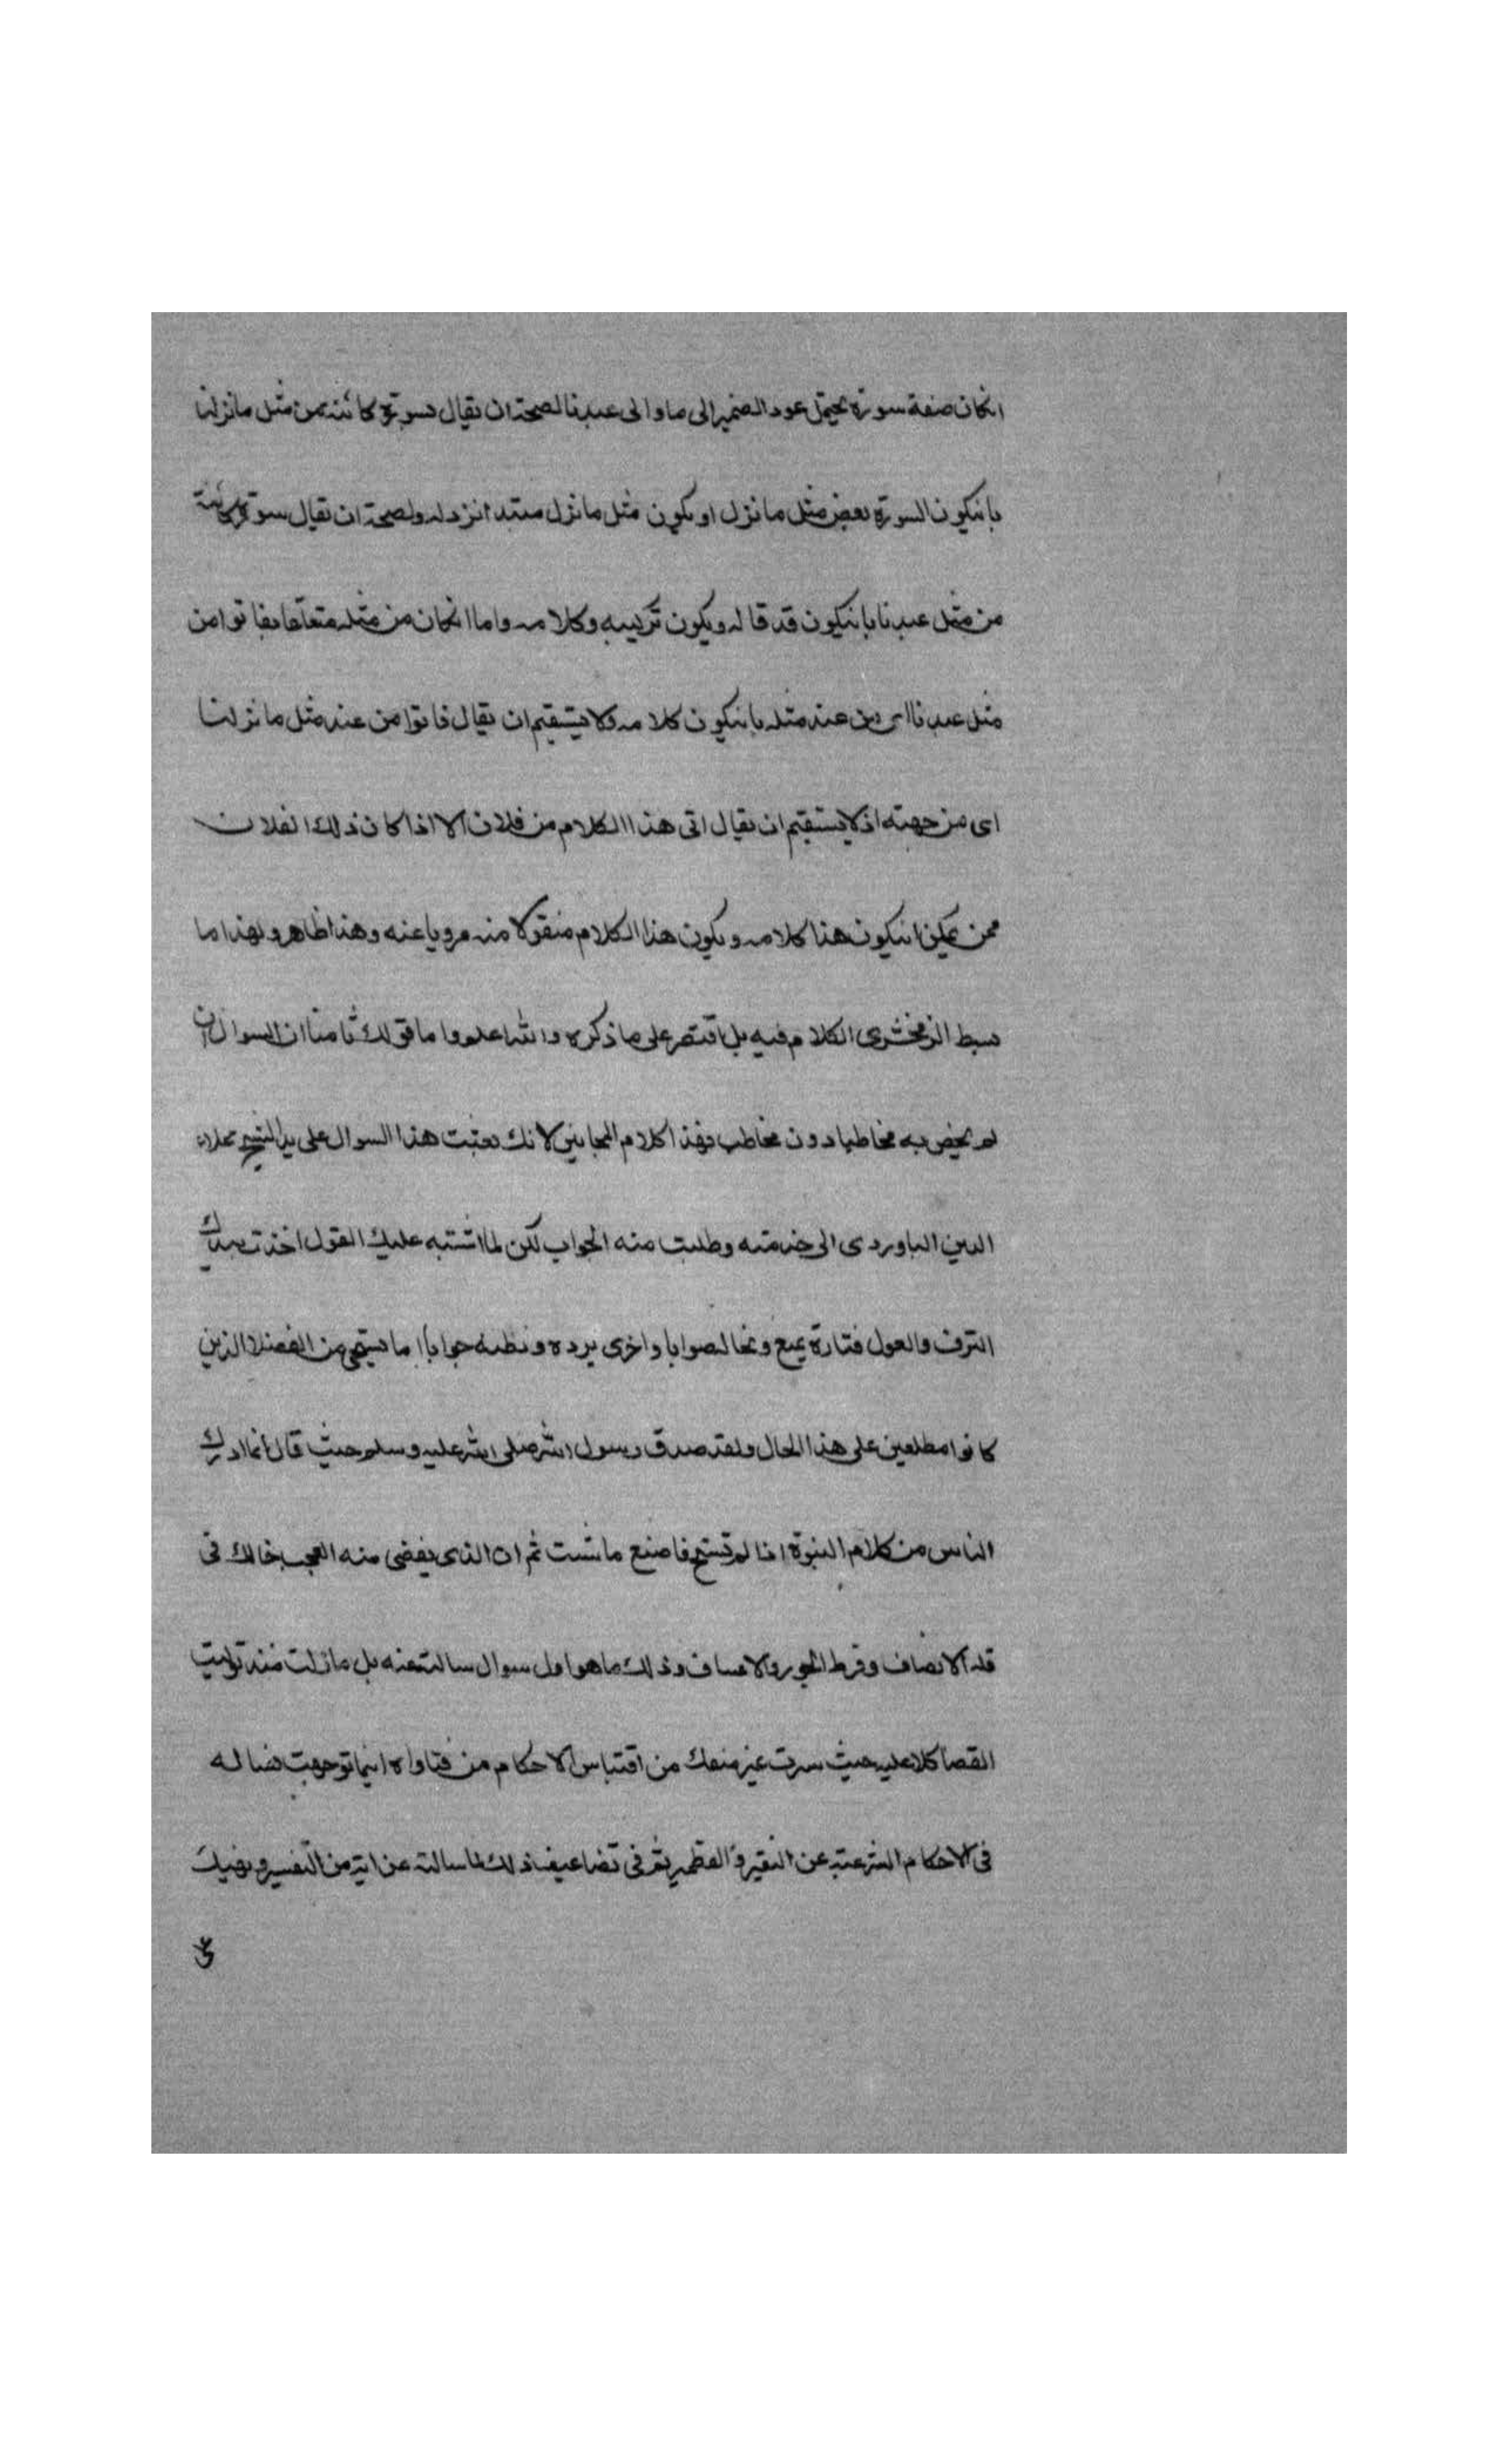 انكان صفة سورة يحتمل عود الضمير الى ما والى عبدنا لصحة ان يقال بسورة كائنة من مثل مانزلنا
بانيكون السورة بعض مثل مانزل او يكون مثل مانزل مبتدا نزوله ولصحة ان يقال سورة كائنة
من مثل عبدنا بانيكون قد قاله ويكون تركيبه وكلامه واما انكان من مثله متعلقا بفاتوا من
مثل عبدنا اى من عند مثله بانيكون كلامه ولا يستقيم ان يقال فاتوا من عند مثل مانزلنا
اى من جهته اذ لا يستقيم ان يقال اتى هذا الكلام من فلان الا اذا كان ذلك الفلان
ممن يمكن انيكون هذا كلامه ويكون هذا الكلام منقولا منه مرويا عنه وهذا ظاهر ولهذا ما
بسط الزمخشرى الكلام فيه بل اقتصر على ما ذكره والله اعلم واما قولك ثامنا ان السوال
لم يخص به مخاطبا دون مخاطب فهذا كلام المجانين لانك بعثت هذا السوال على يد الشيخ علاء
الدين الباوردى الى خدمته وطلبت منه الجواب لكن لما اشتبه عليك القول اخذت
والعول فتارة يمنع وتخاله صوابا واخرى يرده وتظنه جوابا اما تستحى من الفضلا الذين
كانوا مطلعين على هذا الحال ولقد صدق رسول الله صلى الله عليه وسلم حيث قال انما ادرك
الناس من كلام النبوة اذا لم تستح فاصنع ماشئت ثم ان الذى يفضى منه العجب حالك فى
قلة الانصاف وفرط الجور والاعساف وذلك ما هو اول سوال سالت عنه بل مازلت منذ توليت
القضا كلا عليه حيث سرت غير منفك من اقتباس الاحكام من فتاواه اينما توجهت تساله
فى الاحكام الشرعية عن النقير والقطمير ثم فى تضاعيف ذلك لما سالته عن اية من التفسير